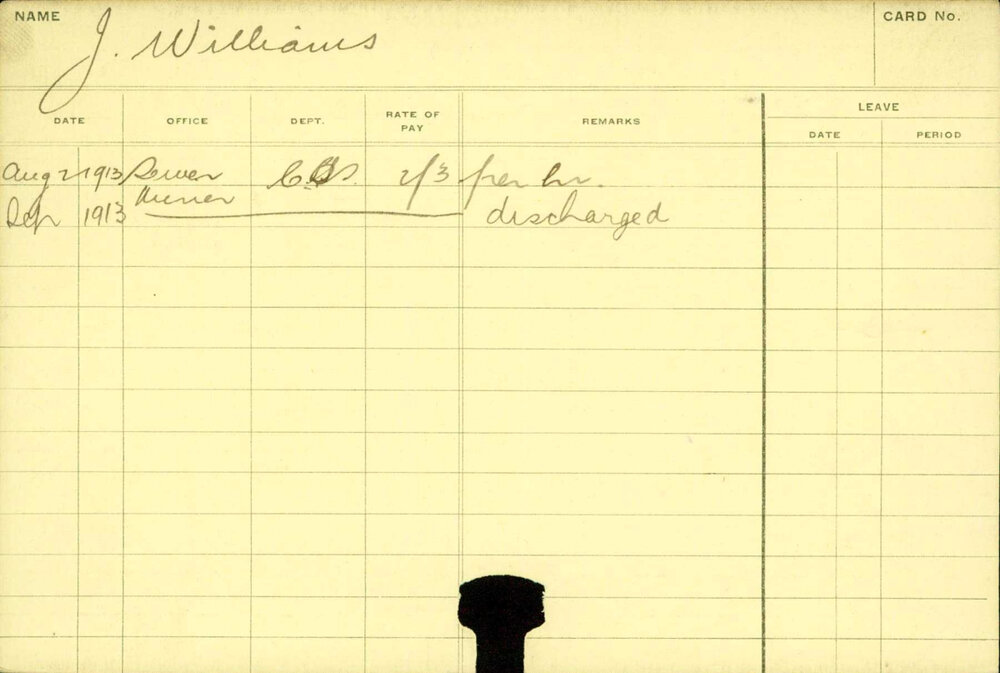 NAME J. Williams CARD No.
LEAVE
DATE OFFICE DEPT. RATE OF PAY REMARKS DATE PERIOD
Aug 21 1913 Sewer Miner 2/3 per hr.
Sep 1913 discharged